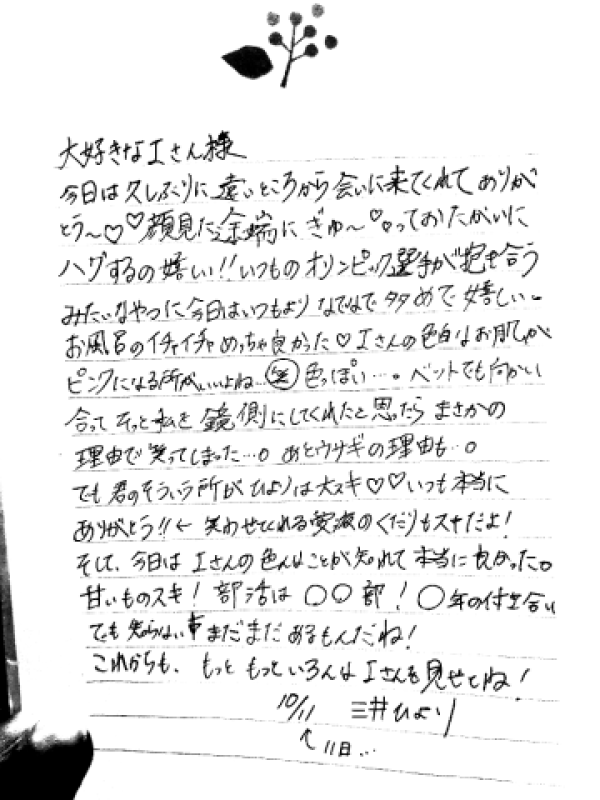 大好きなIさん様
今日は久しぶりに遠いところから会いに来てくれてありが
とう〜♡♡顔見た途端にぎゅ〜♡っておたがいに
ハグするの嬉しい!!いつものオリンピック選手が抱き合う
みたいなやつに今日はいつもよりなでなで多めで嬉しい。
お風呂のイチャイチャめっちゃ良かった♡Iさんの色白なお肌が
ピンクになる所がいいよね…㊋色っぽい…。ベットでも向かい
合ってそっと私を鏡側にしてくれたと思ったらまさかの
理由で笑ってしまった…。あとウサギの理由も…。
でも君のそういう所がひよりは大スキ♡♡いつも本当に
ありがとう!!←笑わせてくれる のくだりもスキだよ!
そして、今日はIさんの色んなことが知れて本当に良かった。
甘いものスキ!部活は〇〇部!〇年の付き合い
でも知らない事まだまだあるもんだね!
これからも、もっともっといろんなIさんを見せてね!
10/11 三井ひより
↑11日…